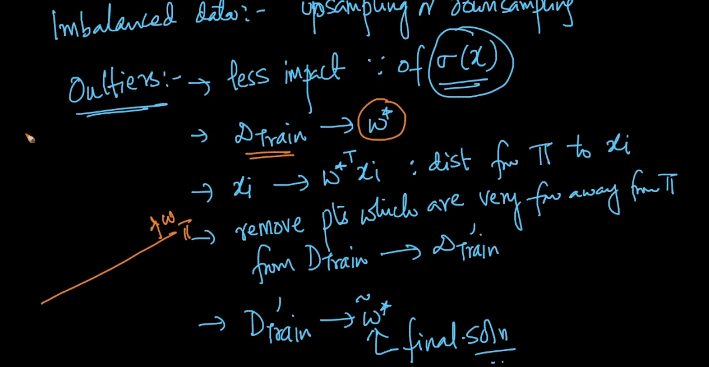 Imbalanced data:- upsampling or downsampling
Outliers:- → less impact ∵ of σ(x)
→ DTrain → w*
→ xi → w*ᵀxi : dist from π to xi
→ remove pts which are very far away from π
from DTrain → D'Train
w
π
→ D'Train → w̃*
↑ final soln